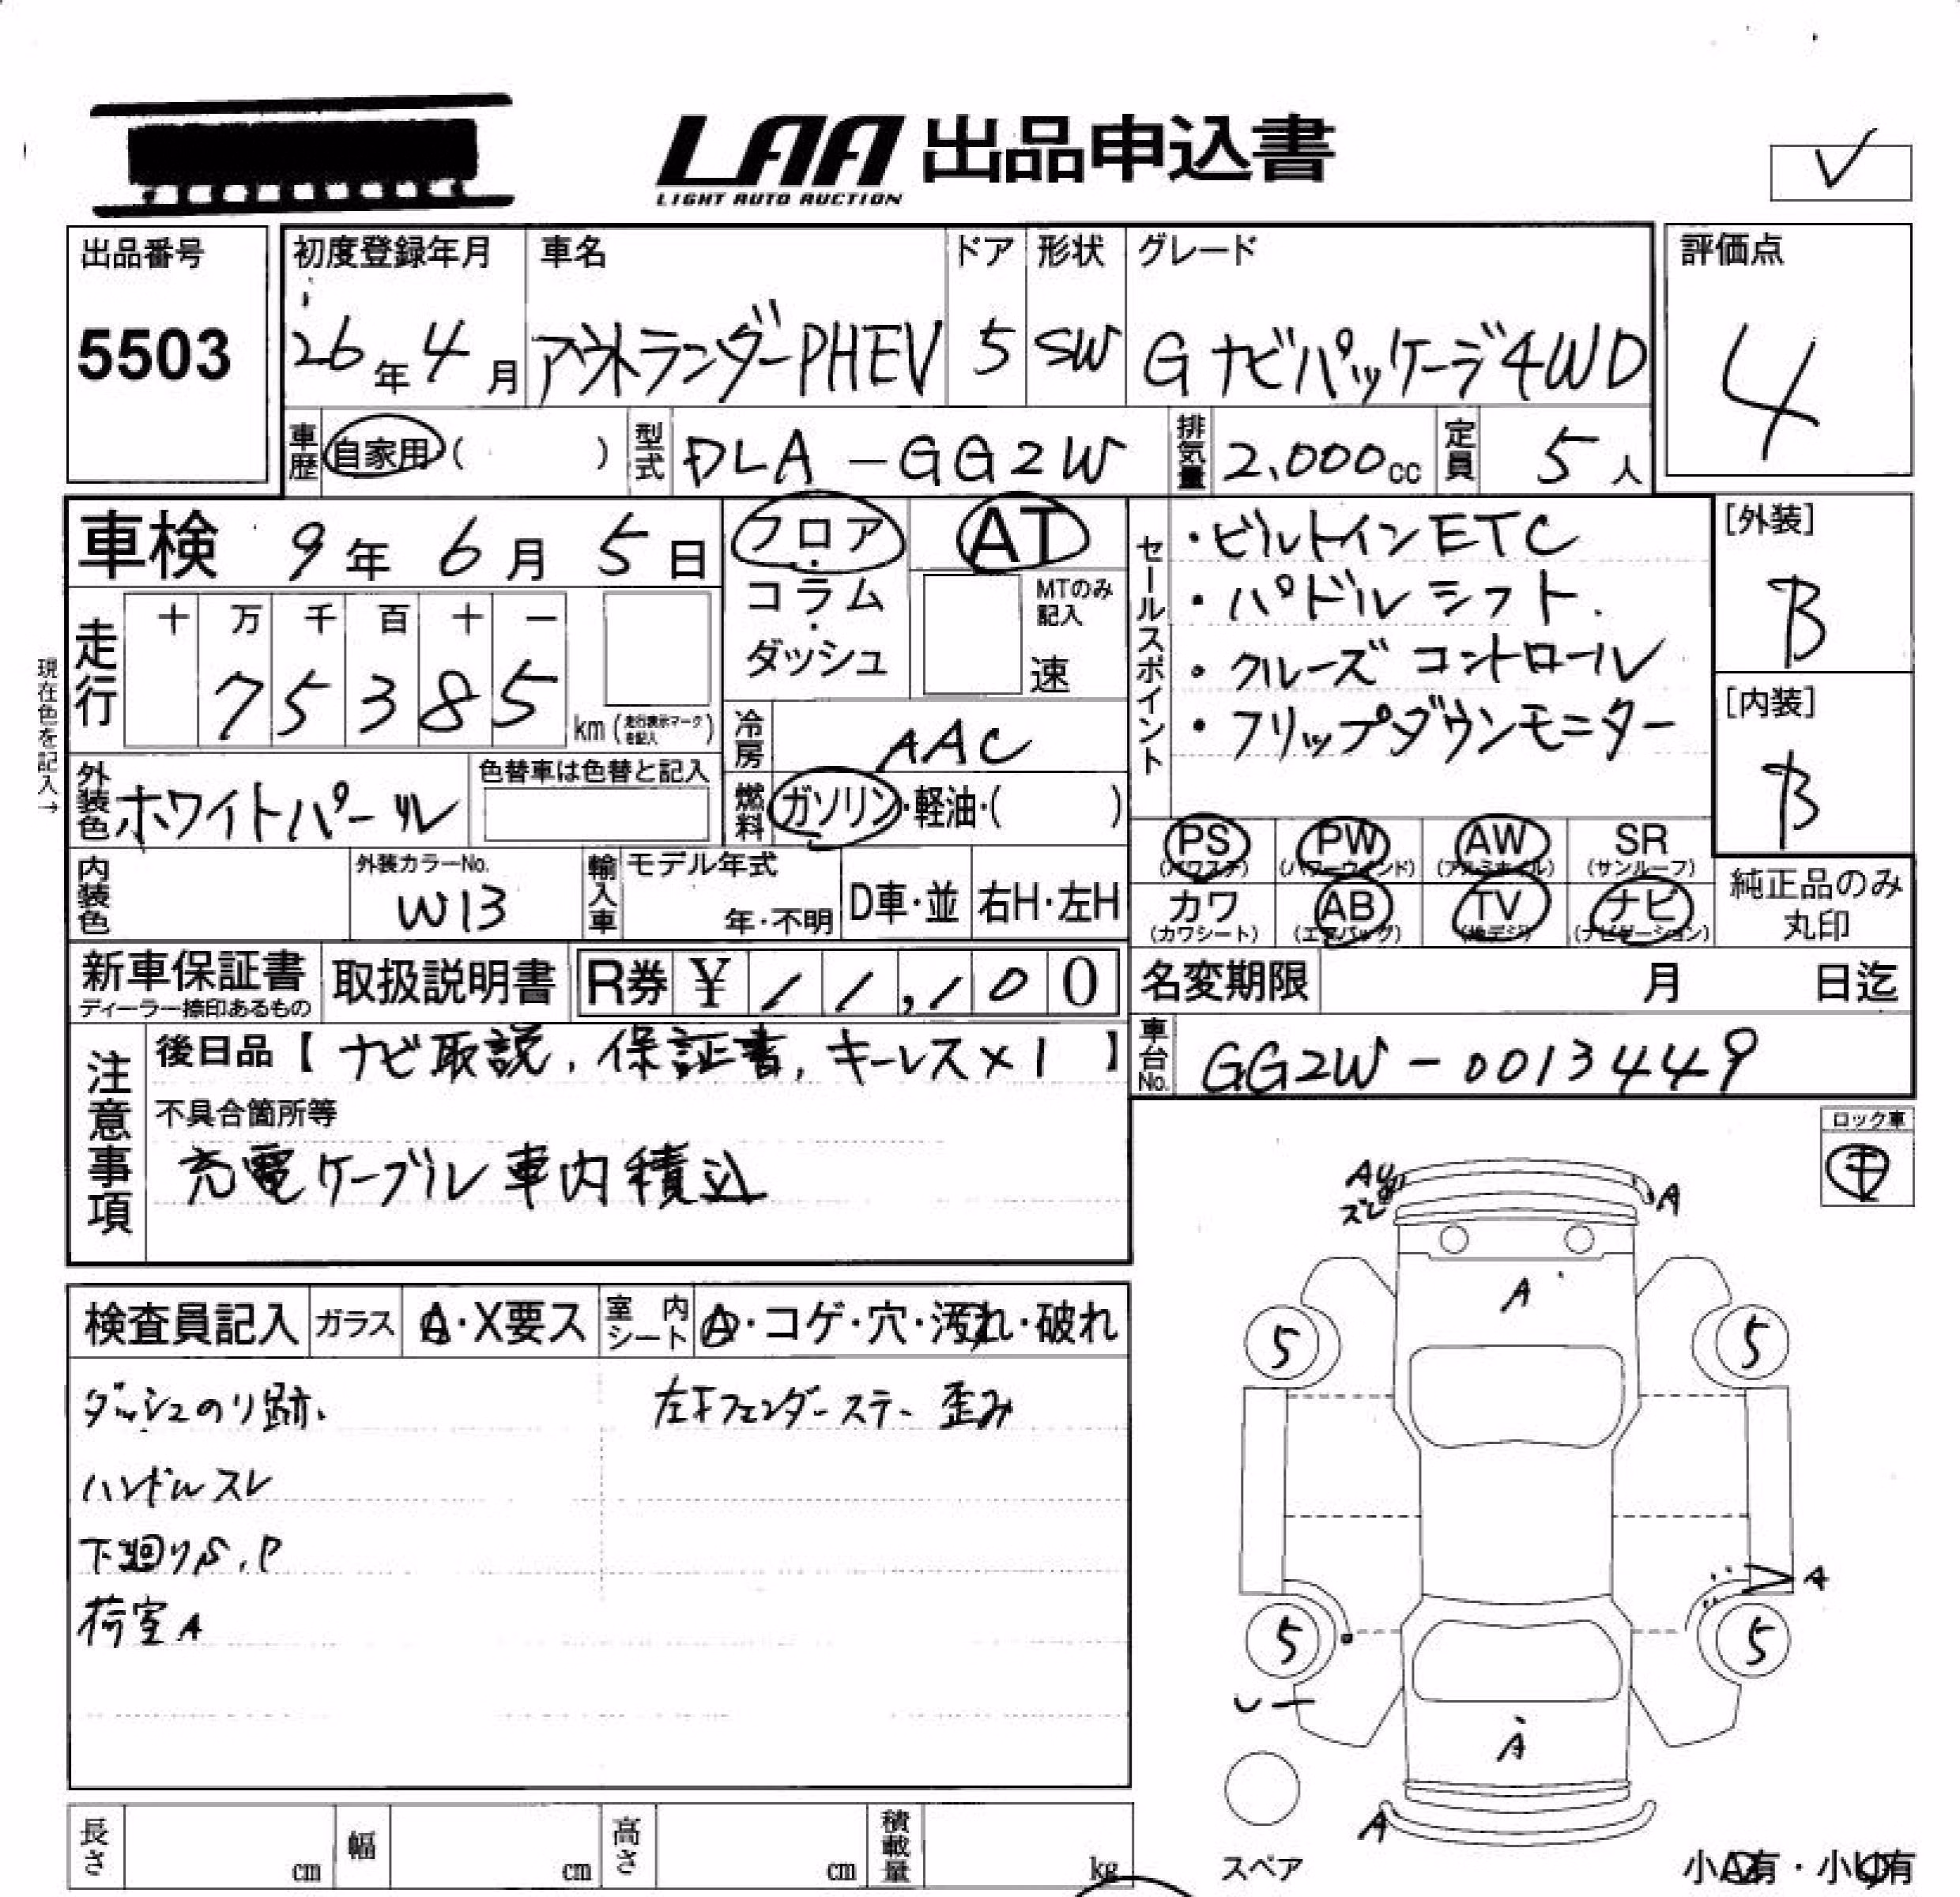 LAA 出品申込書
LIGHT AUTO AUCTION
✓
出品番号
5503
初度登録年月
26年4月
車名
アウトランダーPHEV
ドア
5
形状
SW
グレード
Gナビパッケージ4WD
評価点
4
車歴 自家用( )
型式 DLA-GG2W
排気量 2,000cc
定員 5人
車検 9年6月5日
フロア・コラム・ダッシュ
AT
MTのみ記入
速
セールスポイント
・ビルトインETC
・パドルシフト.
・クルーズコントロール
・フリップダウンモニター
[外装]
B
[内装]
B
現在色を記入→
走行
十 万 千 百 十 一
7 5 3 8 5
km(走行表示マークを記入)
冷房 AAC
外装色 ホワイトパール
色替車は色替と記入
燃料 ガソリン・軽油・( )
PS (パワステ)
PW (パワーウインド)
AW (アルミホイル)
SR (サンルーフ)
カワ (カワシート)
AB (エアバッグ)
TV (地デジ)
ナビ (ナビゲーション)
純正品のみ丸印
内装色
外装カラーNo.
W13
輸入車
モデル年式
年・不明
D車・並
右H・左H
新車保証書
ディーラー捺印あるもの
取扱説明書
R券 ¥ 11,100
名変期限 月 日迄
車台No. GG2W-0013449
注意事項
後日品【ナビ取説,保証書,キーレス×1】
不具合箇所等
充電ケーブル車内積込
ロック車
検査員記入
ガラス
A・X要ス
室内シート
A・コゲ・穴・汚れ・破れ
ダッシュのり跡.
左下フェンダーステー歪み
ハンドルスレ
下廻りS,P
荷室A
AU
ズレ
A
A
5
5
5
5
A
A
A
スペア
小A有・小U有
長さ cm
幅 cm
高さ cm
積載量 kg